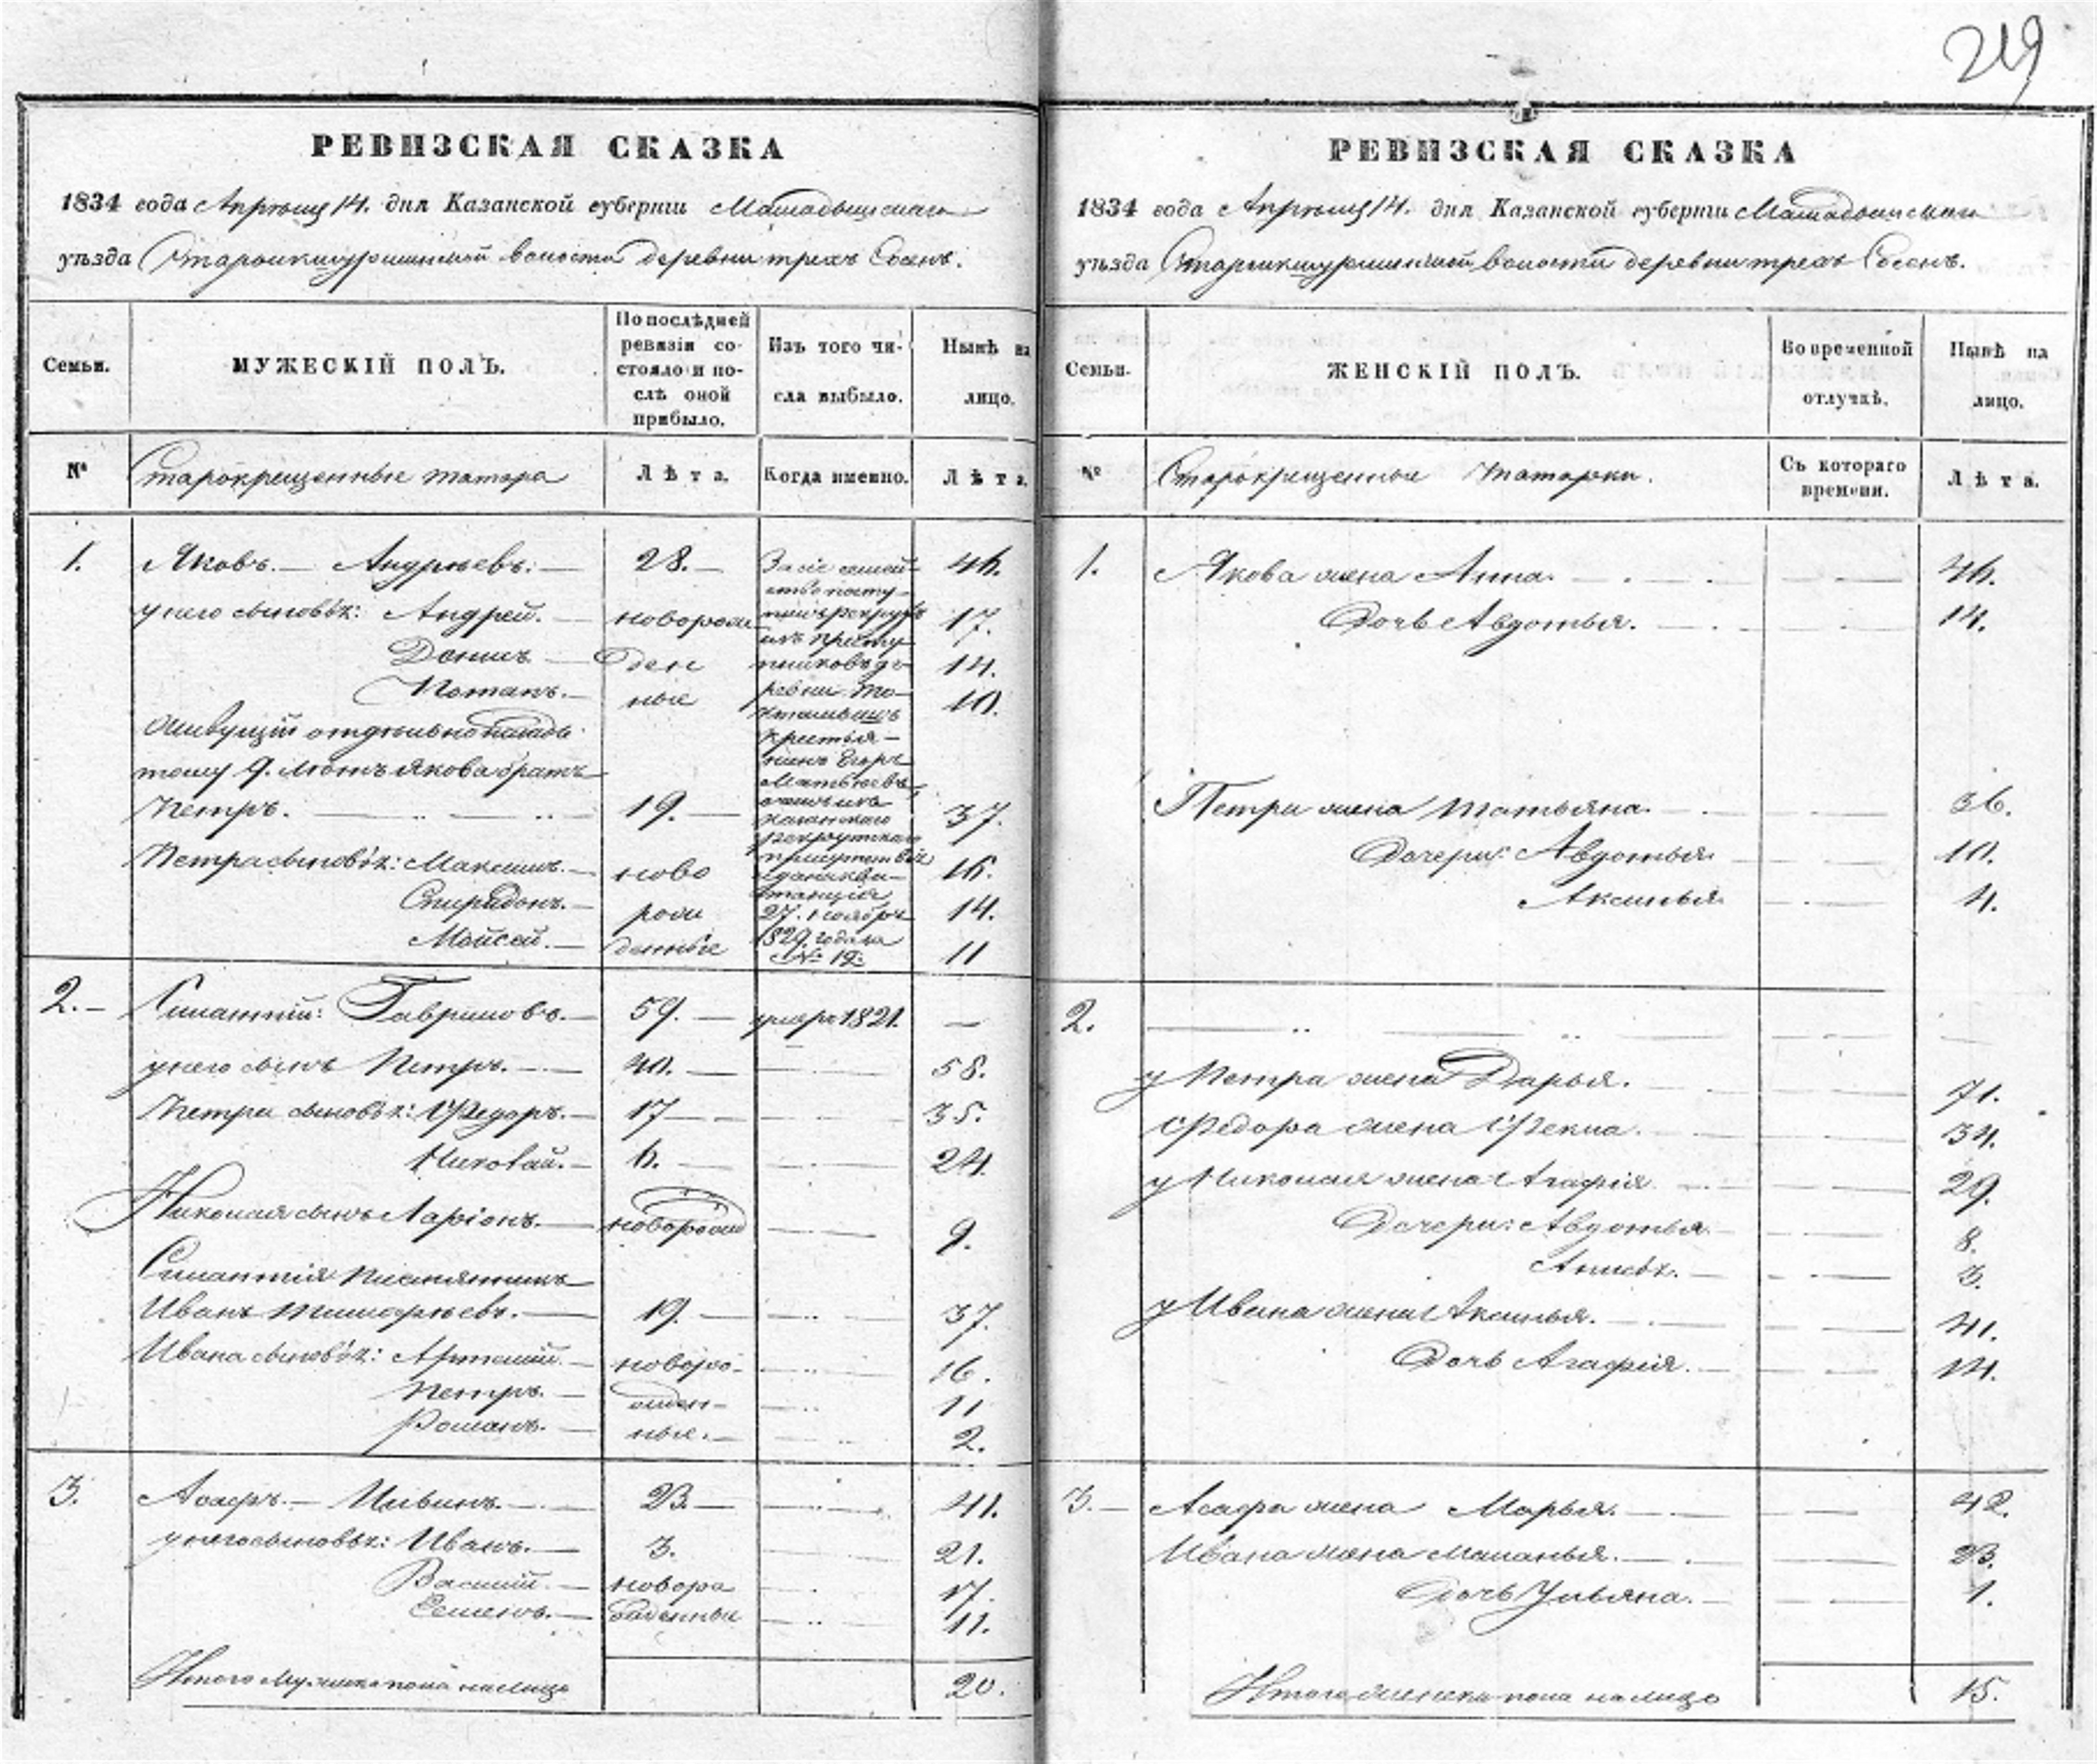 219
РЕВИЗСКАЯ СКАЗКА
1834 года Апрѣля 14. дня Казанской губерніи Мамадышскаго
уѣзда Староикшурминской волости деревни трехъ Сосенъ.
Семьи.
МУЖЕСКІЙ ПОЛЪ.
По послѣдней
ревизіи со-
стояло и по-
слѣ оной
прибыло.
Изъ того чи-
сла выбыло.
Нынѣ на
лицо.
№
Старокрещенные татара
Лѣта.
Когда именно.
Лѣта.
1. Яковъ. Андрѣевъ: 28. 46.
у него сыновья: Андрей. новорож 17.
Данилъ ден 14.
Потапъ. ные 10.
За сіе семей
ство посту
деревни
крестья-
нинъ Егоръ
Матвѣевъ
27. ноября
1829 года за
№ 12:
Живущій отдѣльно
тому 9. лѣтъ Якова братъ
Петръ. 19. 37.
Петра сыновья: Максимъ. ново 16.
Спиридонъ. рож 14.
Мойсей. денные 11
2. Силантій: Гавриловъ. 59. умеръ 1821. —
у него сынъ Петръ. 40. 58.
Петра сыновья: Ѳедоръ. 17 35.
Николай. 6. 24.
Николая сынъ Ларіонъ. новорожд 9.
Силантія племянникъ
Иванъ 19. 37.
Ивана сыновья: Артемій. новоро- 16.
Петръ. жден- 11
Романъ. ные. 2.
3. Асафъ. Ильинъ. 23. 41.
у него сыновья: Иванъ. 3. 21.
Василій. новоро 17.
Семенъ. жденные 11.
Итого мужеска пола на лицо 20.
РЕВИЗСКАЯ СКАЗКА
1834 года Апрѣля 14. дня Казанской губерніи Мамадышскаго
уѣзда Староикшурминской волости деревни трехъ Сосенъ.
Семьи.
ЖЕНСКІЙ ПОЛЪ.
Во временной
отлучкѣ.
Нынѣ на
лицо.
№
Старокрещенныя татарки.
Съ котораго
времени.
Лѣта.
1. Якова жена Анна. 46.
Дочь Авдотья. 14.
Петра жена Татьяна. 36.
Дочери: Авдотья 10.
Аксинья 4.
2.
у Петра жена Дарья. 71.
Ѳедора жена Ѳекла. 34.
у Николая жена Агафія 29.
Дочери: Авдотья 8.
3.
у Ивана жена Аксинья. 41.
Дочь Агафія. 14.
3. Асафа жена Марья. 42.
Ивана жена Маланья. 23.
Дочь Ульяна. 1.
Итого женска пола на лицо 15.